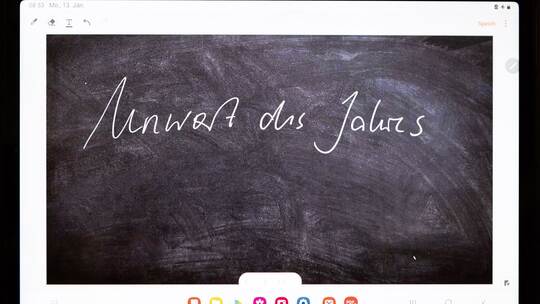 08:53 Mo., 13. Jan.
Speich
Unwort des Jahres